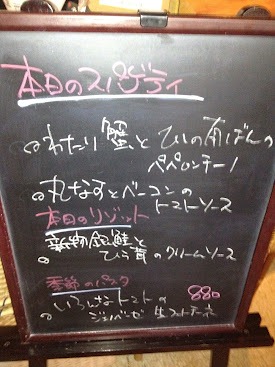 本日のスパゲティ
◎わたり蟹とひの菜ぼんの
ペペロンチーノ
◎丸なすとベーコンの
トマトソース
本日のリゾット
◎新物銀鮭と
ひら茸のクリームソース
季節のパスタ 880
◎いろんなトマトの
ジェノベーゼ 生フェットチーネ